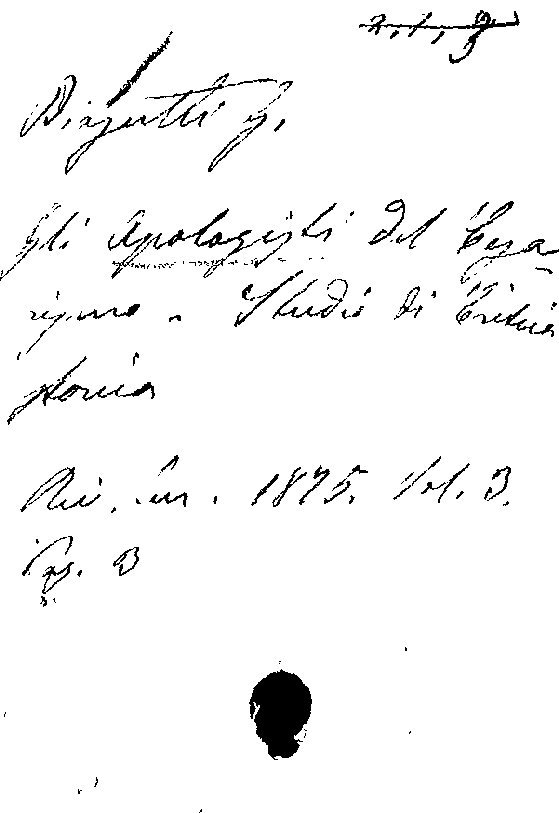 2, 1, 3
Biagutti G,
Gli Apologisti del Cesa
rismo - Studio di Critica
storica
Riv. Eur. 1875. Vol. 3.
Pag. 3